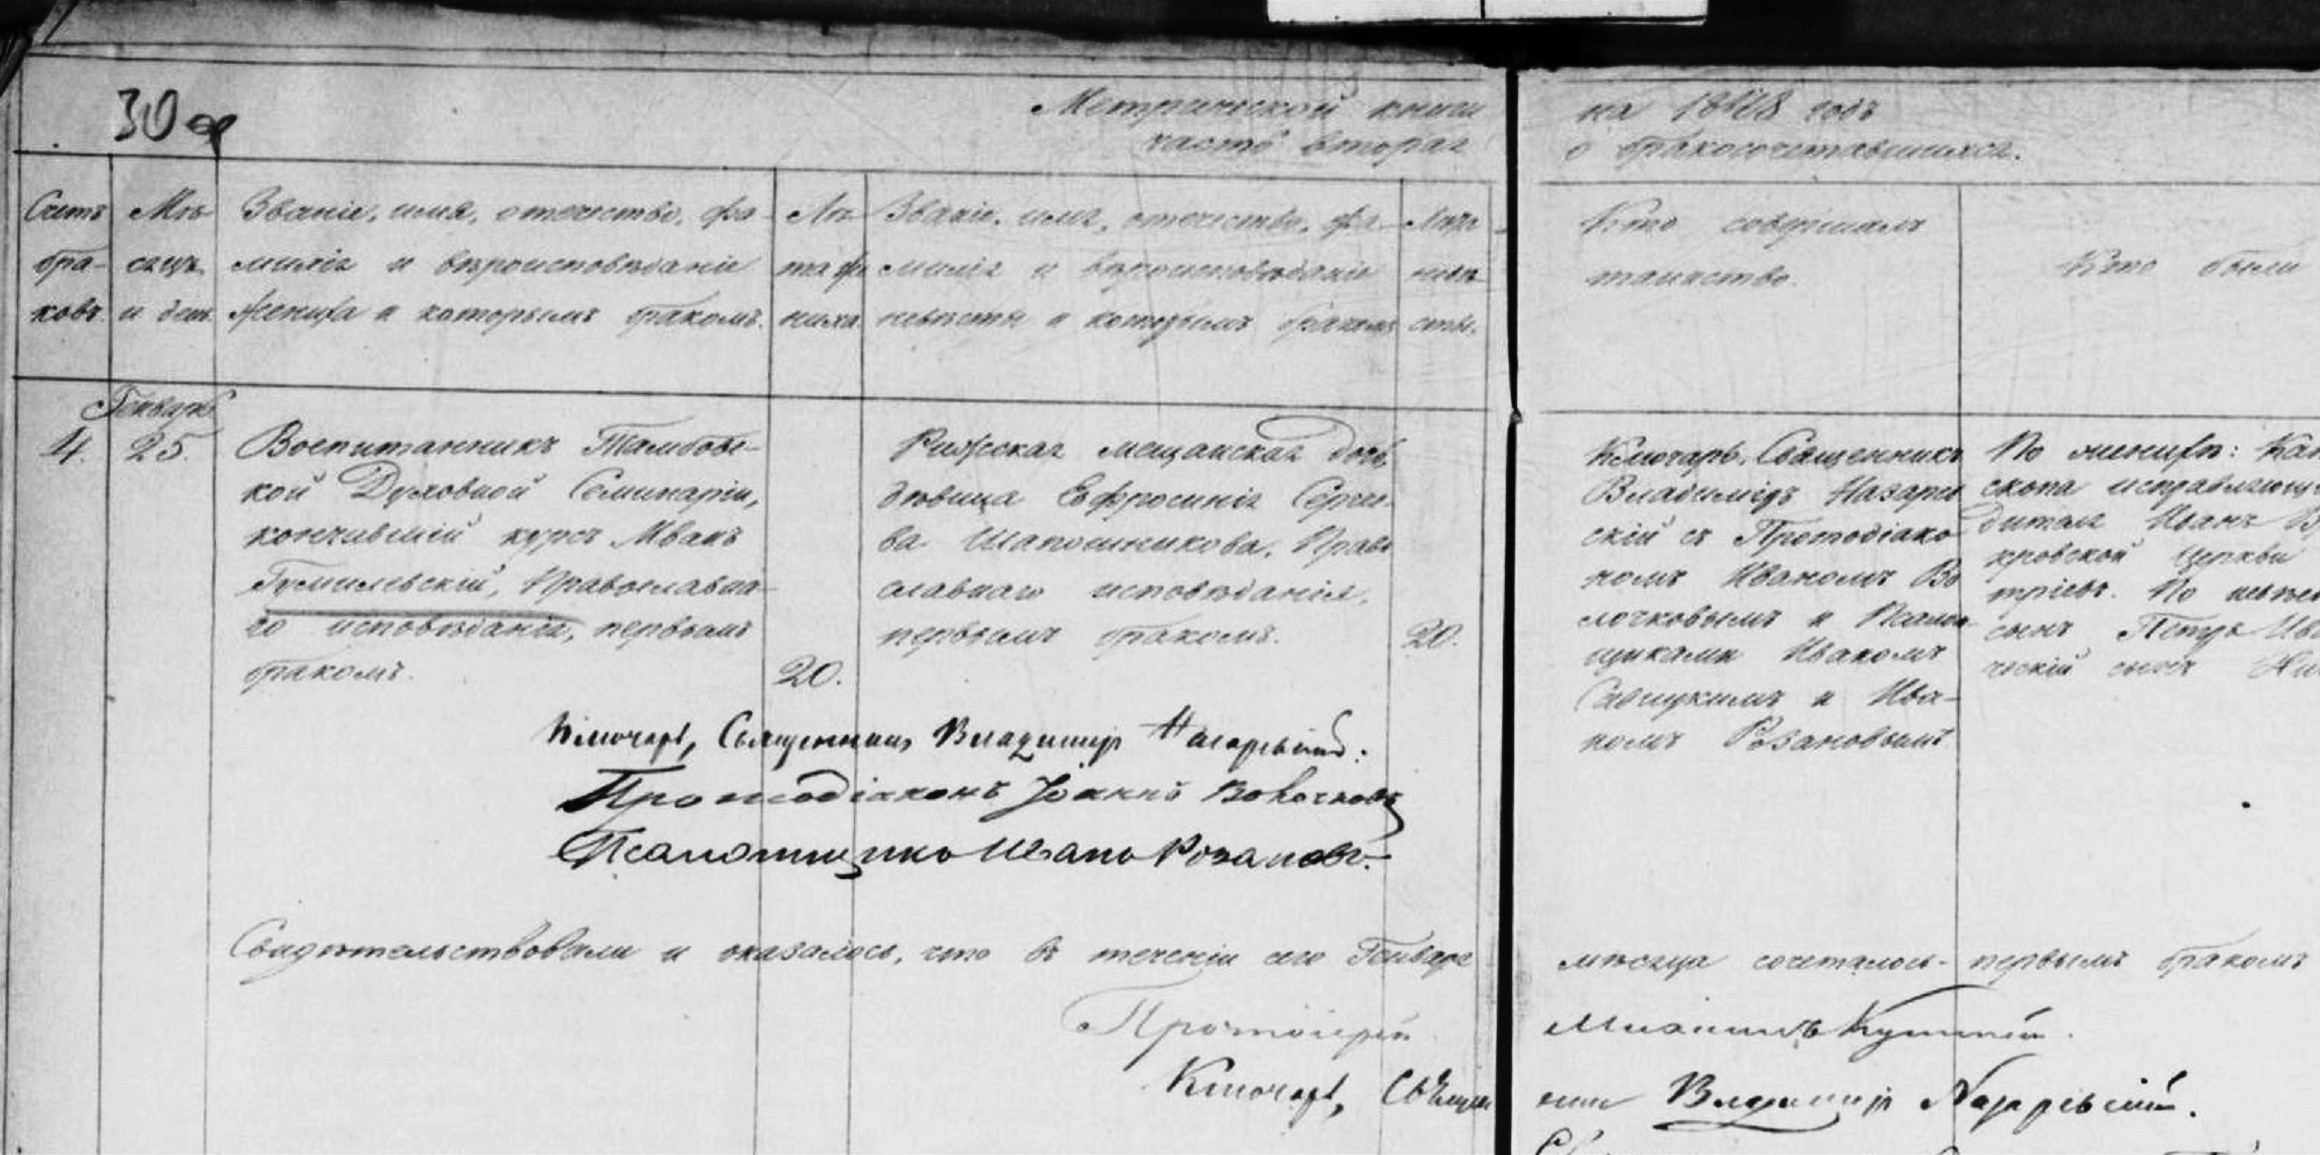 30
Метрической книги
часть вторая
на 18 8 годъ
о бракосочетавшихся.
Счетъ бра-ковъ.
Мѣ-сяцъ и день.
Званіе, имя, отечество, фа-
милія и вѣроисповѣданіе
жениха и которымъ бракомъ.
Лѣ-
та же-
ниха
Званіе, имя, отечество, фа-
милія и вѣроисповѣданіе
невѣсты и которымъ бракомъ
Лѣта
невѣ-
сты.
Кто совершалъ
таинство.
Кто были
Генварь
4.
25.
Воспитанникъ Тамбовс-
кой Духовной Семинаріи,
кончившій курсъ Иванъ
Гумилевскій, Православна-
го исповѣданія, первымъ
бракомъ.
20.
Рижская мещанская дочь,
дѣвица Ефросинія Сергѣе-
ва Шапошникова, Право
славнаго исповѣданія,
первымъ бракомъ.
20.
Ключарь, Священникъ
Владиміръ Назарев
скій съ Протодіако
номъ Иваномъ Во
лочковымъ и Псалом
щиками Иваномъ
Садицкимъ и Ива-
номъ Розановымъ
По женихѣ: Кан
скопа исправляющ
дитал Иванъ В
кровской Церкви
тріевъ. По невѣс
сынъ Петръ Ив
ческій сынъ Ни
Ключарь, Священникъ Владиміръ Назаревскій.
Протодіаконъ Іоаннъ Волочковъ
Псаломщикъ Иванъ Розановъ.
Свидѣтельствовали и оказалось, что въ теченіи сего Генваря мѣсяца сочеталось первымъ бракомъ
Протоіерей
Ключарь, Священ
никъ Владиміръ Назаревскій.